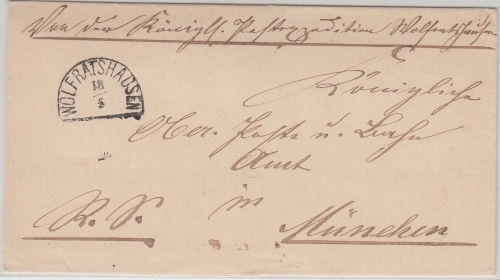 Von der Königl. Postexpedition Wolfratshausen
WOLFRATSHAUSEN
18
5
Königliche
Ober-Post- u. Bahn
Amt
R. S. in
München